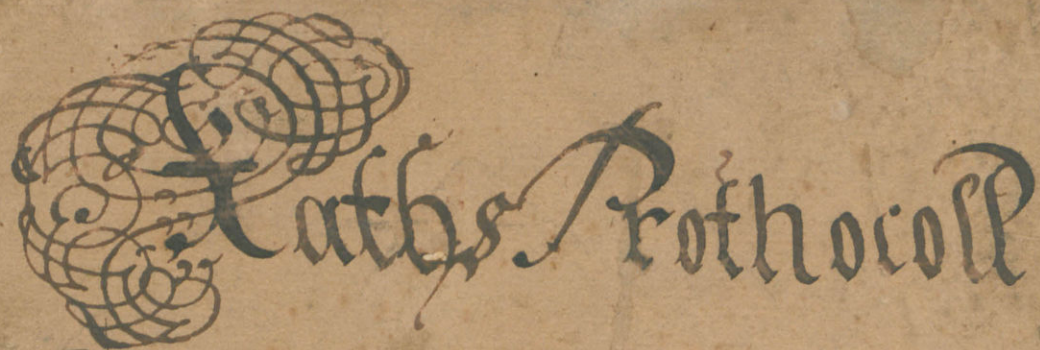 Raths Prothocoll